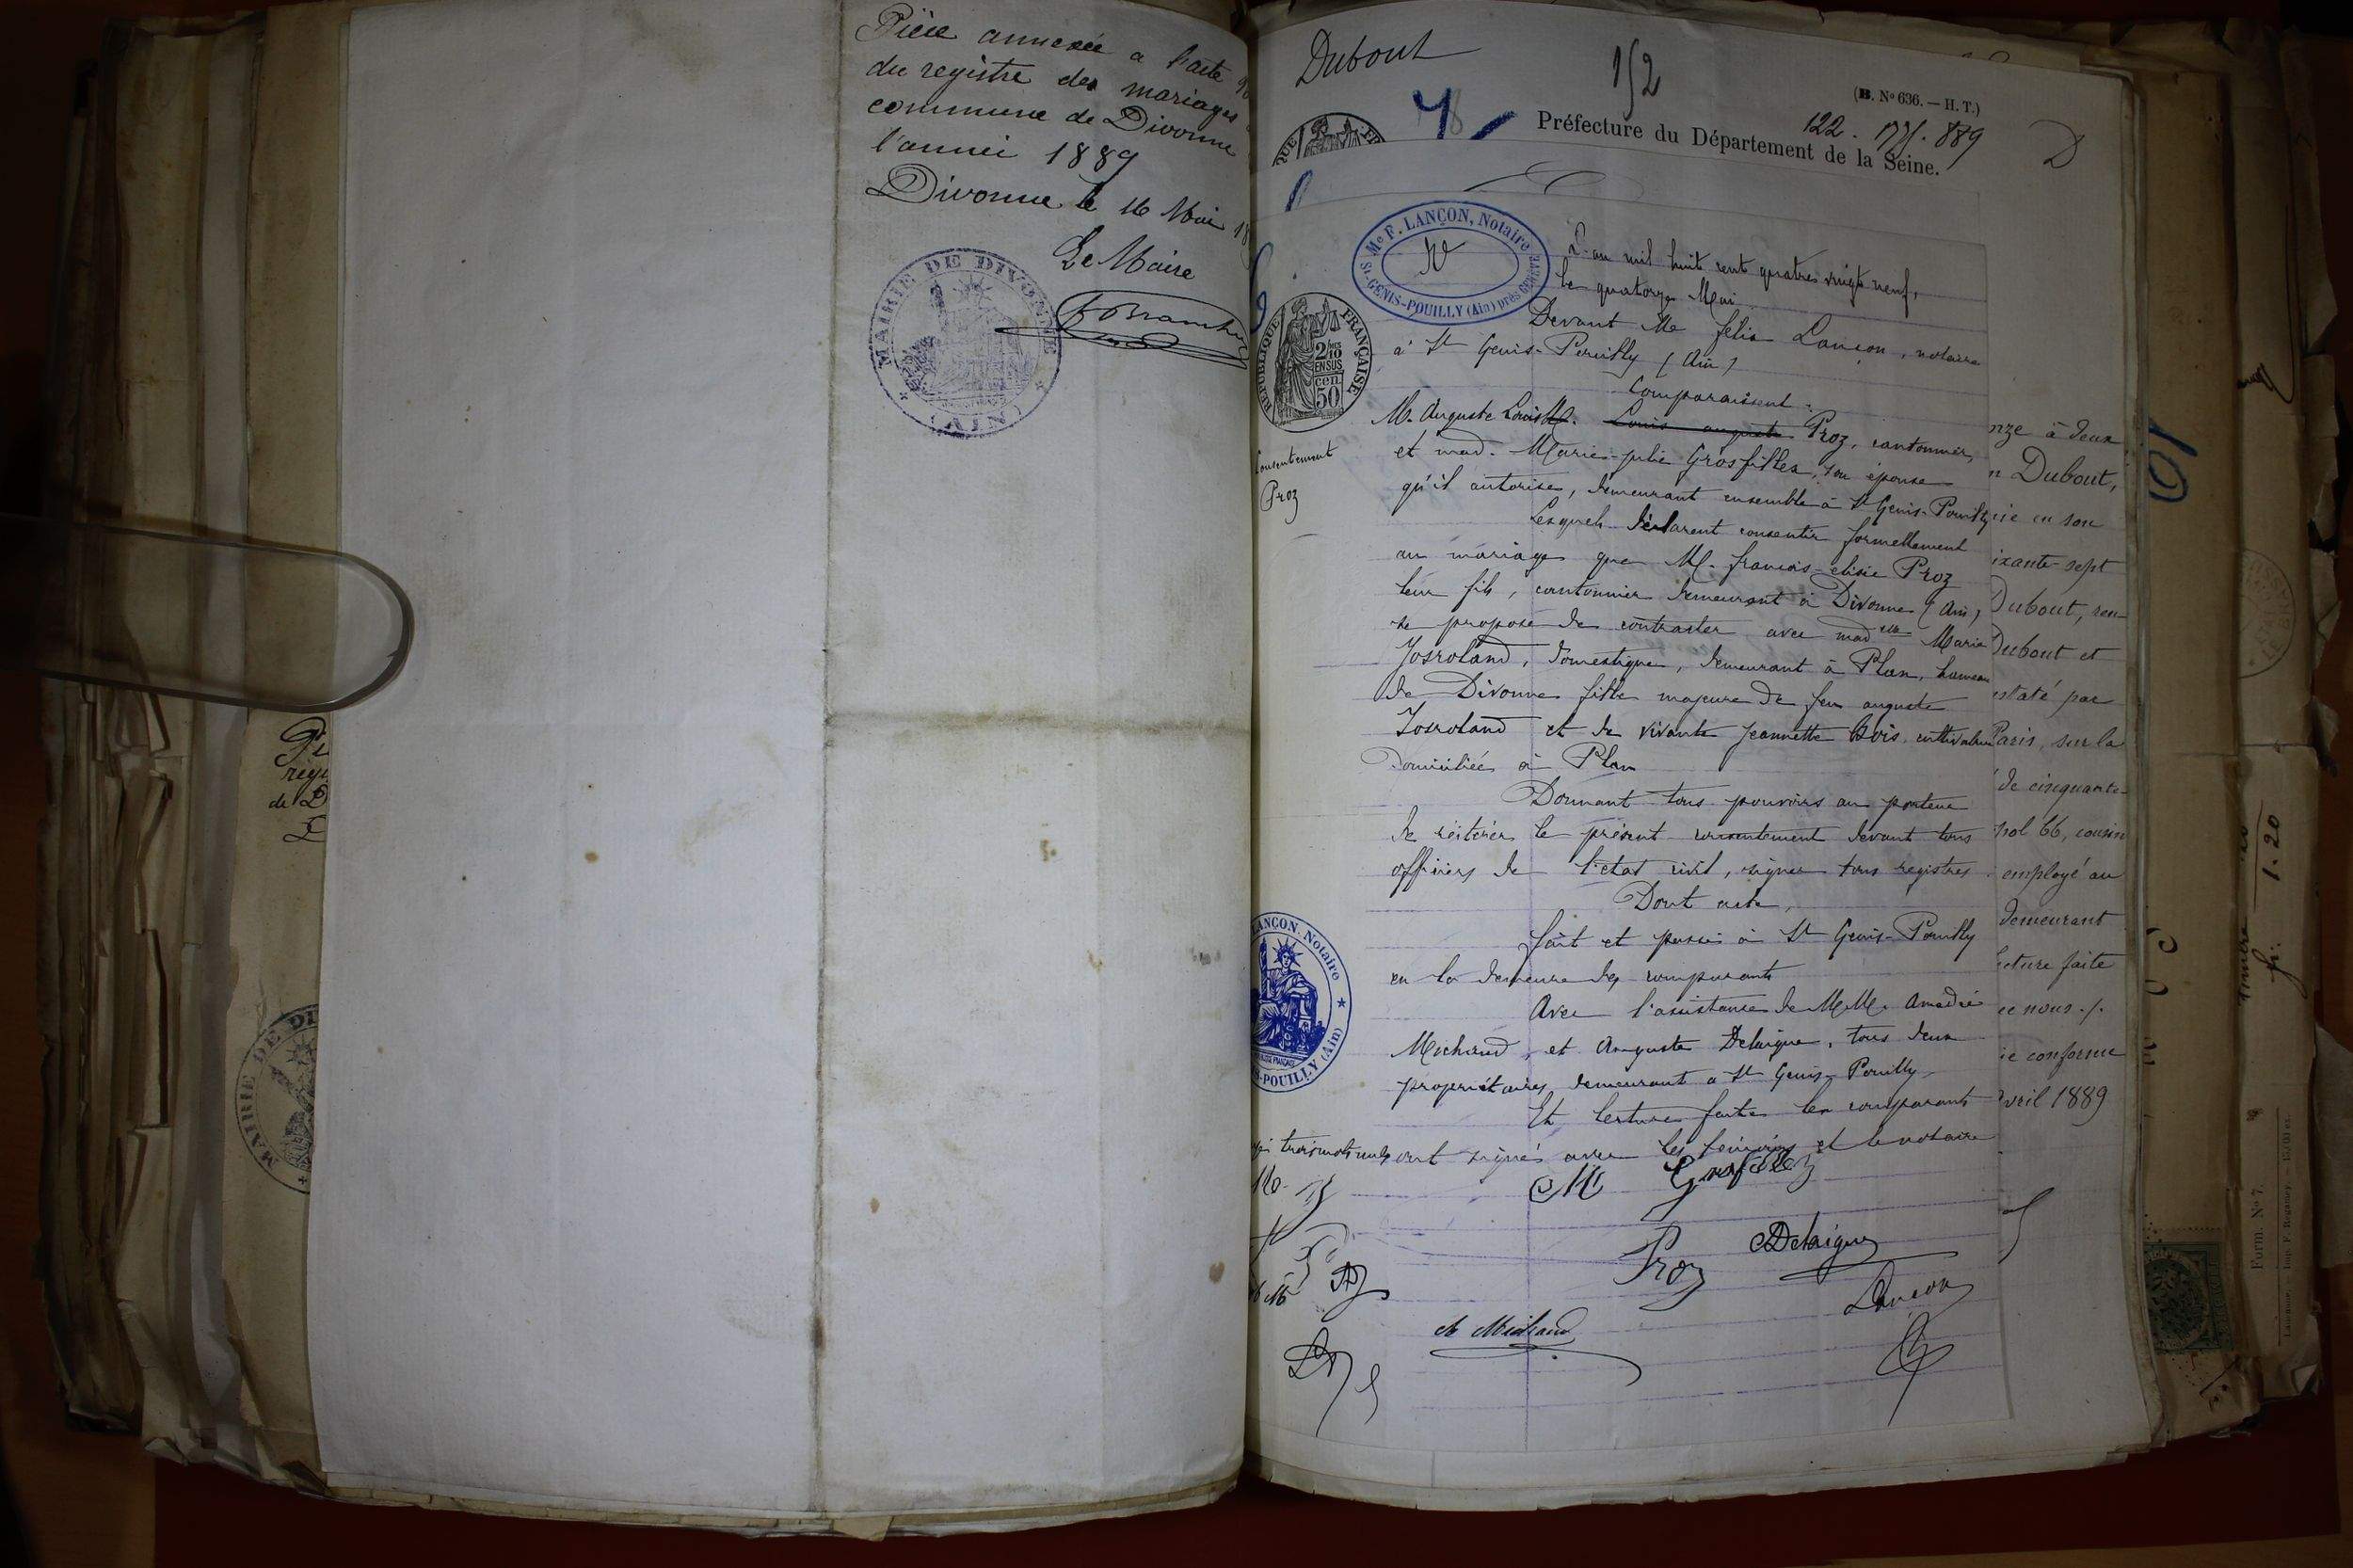 Pièce annexée a l'acte
du registre des mariages
commune de Divonne
l'année 1889
Divonne le 16 Mai 18
Le Maire
MAIRIE DE DIVONNE
(AIN)
MAIRIE DE DI
de D
Dubout
152
(B. No 636. — H. T.)
Préfecture du Département de la Seine.
D
Me F. LANÇON, Notaire
St-GENIS-POUILLY (Ain) près GENÈVE
L'an mil huit cent quatre vingt neuf,
le quatorze Mai
Devant Me felix Lançon, notaire
à St Genis-Pouilly (Ain)
Comparaissent :
M. Auguste Louis Proz, cantonnier,
et mad. Marie-julie Grosfillex, son épouse
qu'il autorise, demeurant ensemble à St Genis-Pouilly
Lesquels déclarent consentir formellement
au mariage que M. francois-elisie Proz
leur fils, cantonnier demeurant à Divonne (Ain)
se propose de contracter avec madelle Marie
Josroland, domestique, demeurant à Plan, hameau
de Divonne fille majeure de feu auguste
Josroland et de vivante Jeannette Bois cultivatrice
domiciliée à Plan
Donnant tous pouvoirs au porteur
de réitérer le présent consentement devant tous
officiers de l'etat civil, signer tous registres.
Dont acte,
fait et passé à St Genis-Pouilly
en la demeure des comparants
Avec l'assistance de MM. Amédée
Michaud, et Auguste Delaigue, tous deux
propriétaires, demeurant a St Genis-Pouilly
Et lecture faite les comparants
ont signé avec les témoins et le notaire
trois mots nuls
Consentement
Proz
REPUBLIQUE FRANÇAISE
2/10 EN SUS
50 cen
LANÇON, Notaire
POUILLY (Ain)
Grosfillex
Proz
Delaigue
Lançon
A Michaud
nze à deux
n Dubout,
ie en son
ixante-sept
Dubout, ren-
Dubout et
staté par
Paris, sur la
de cinquante-
hol 66, cousin
employé au
demeurant
cture faite
ec nous ./.
ie conforme
Avril 1889
1.20
Form. No 7.